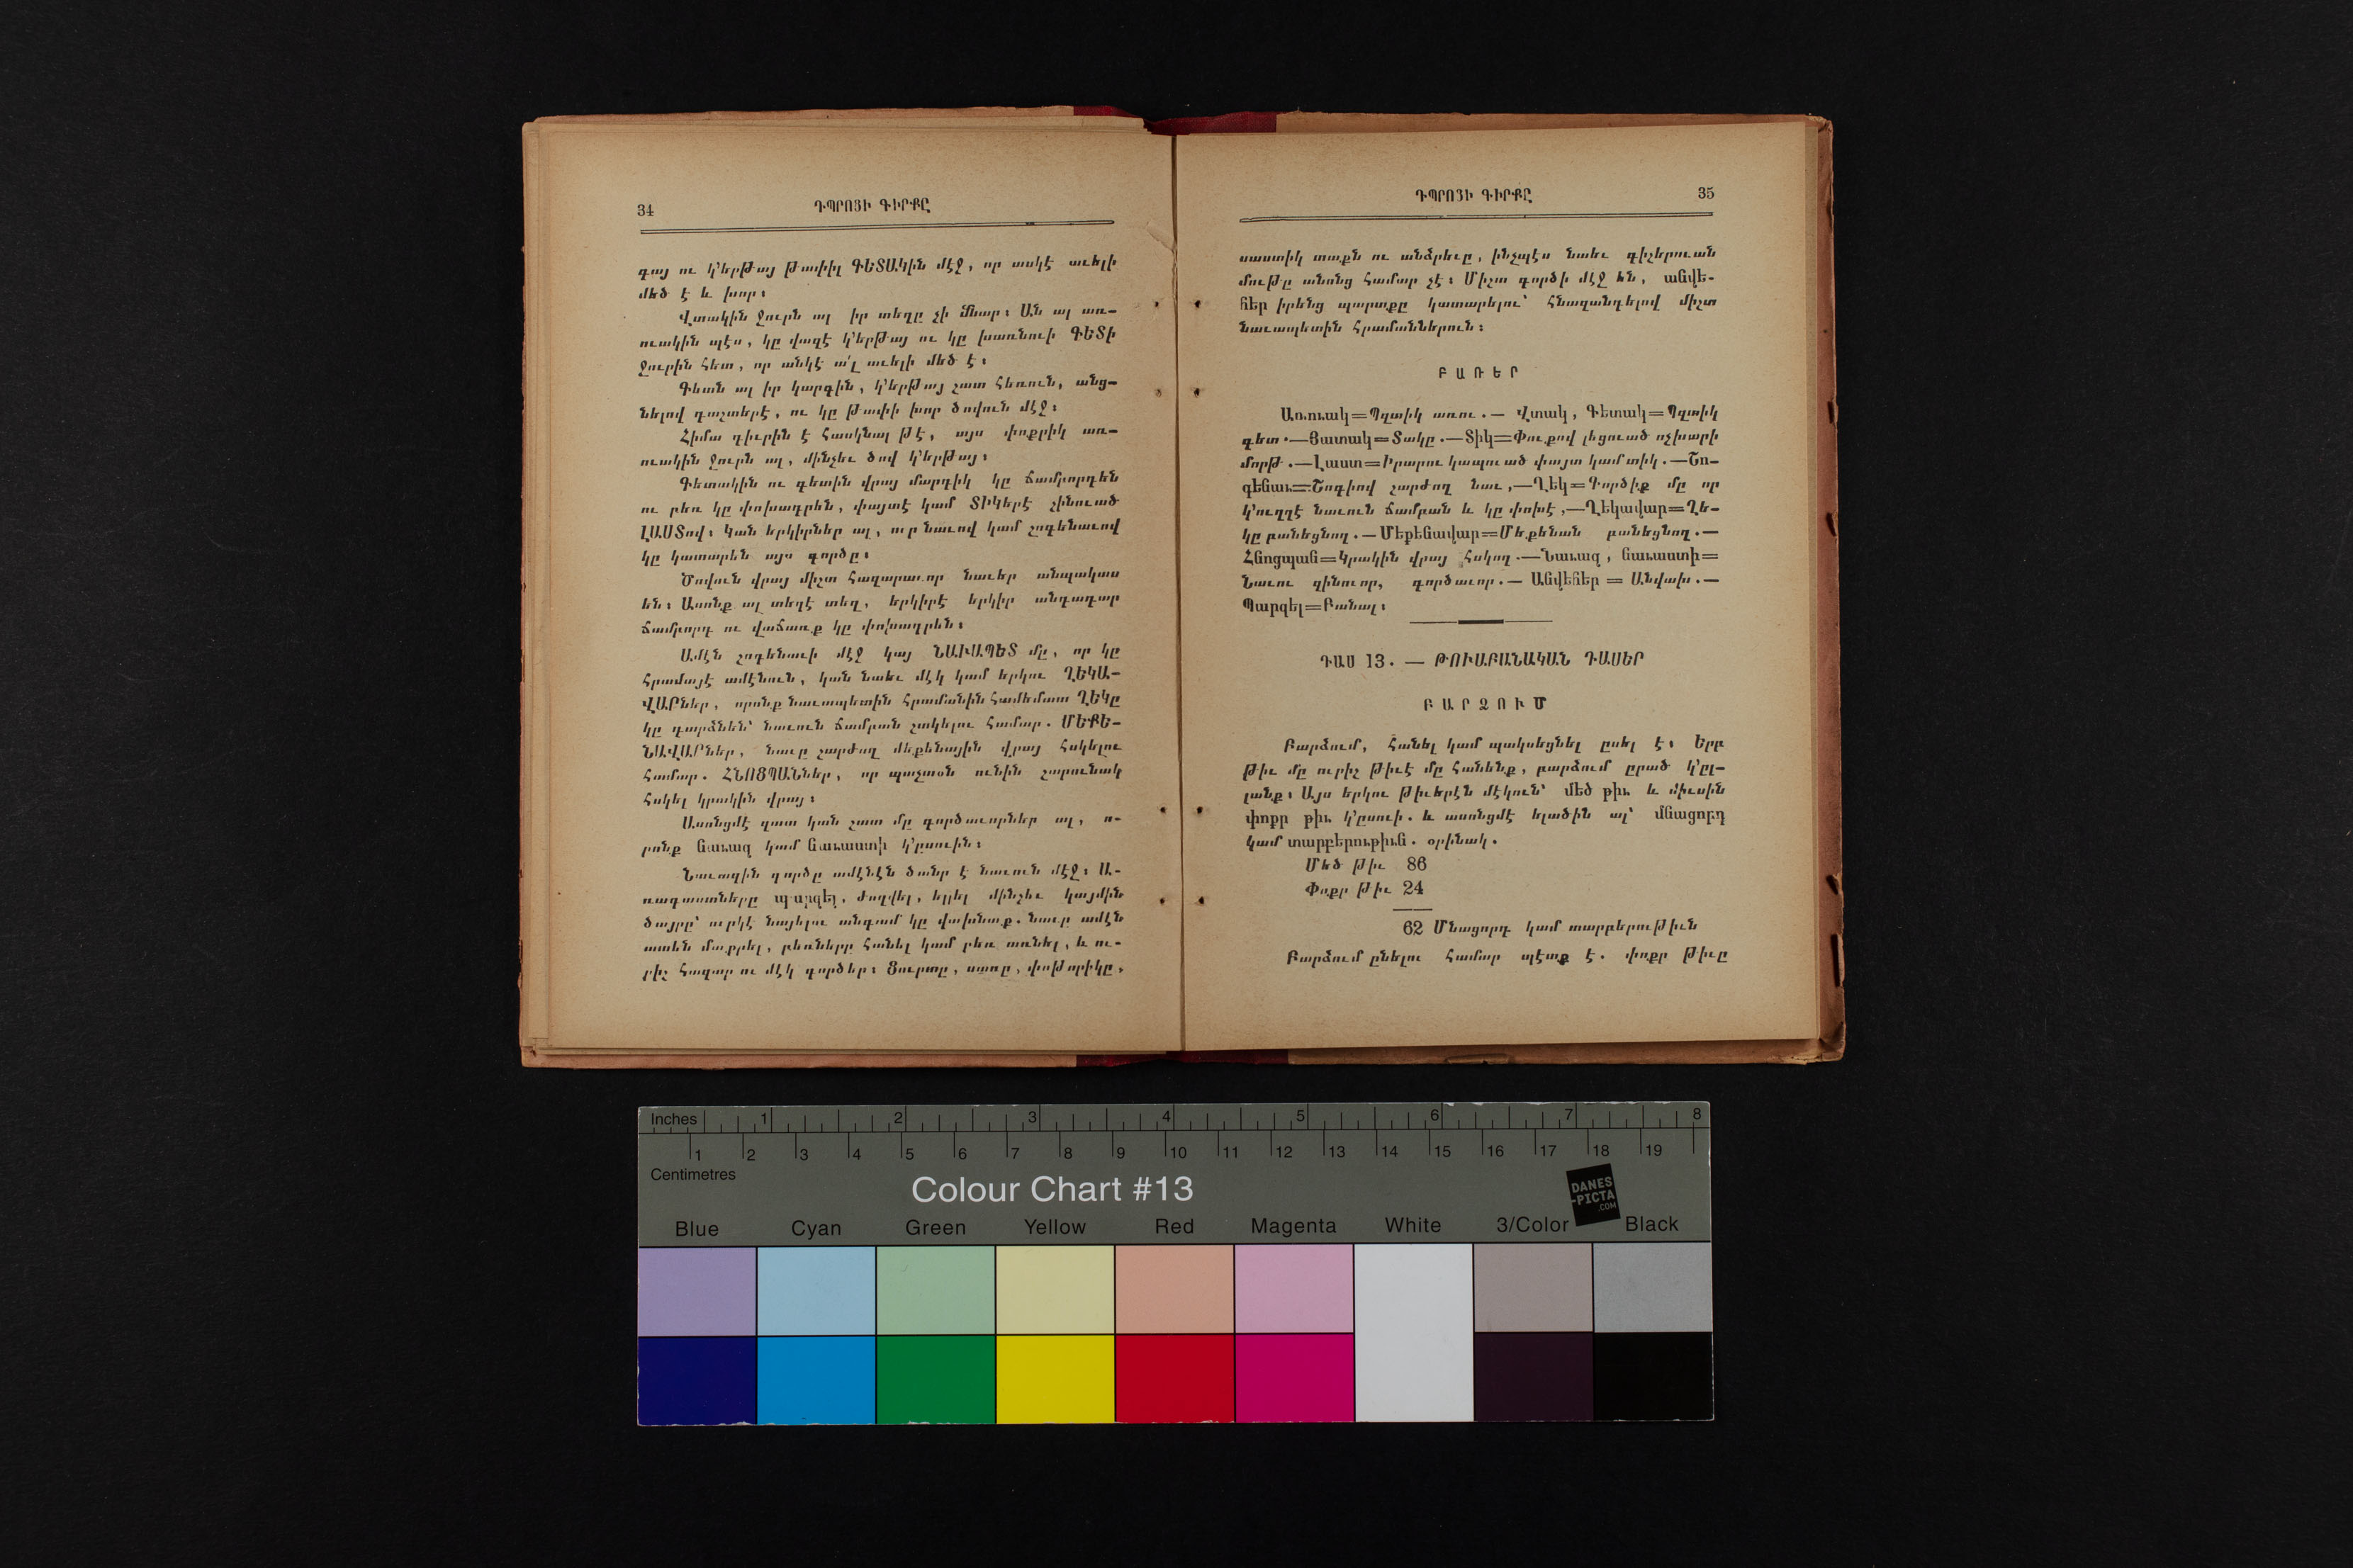 34
ԴՊՐՈՑԻ ԳԻՐՔԸ
գայ ու կ՚երթայ թափիլ ԳԵՏԱԿին մէջ, որ ասկէ աւելի
մեծ է և խոր։
Վտակին ջուրն ալ իր տեղը չի մնար։ Ան ալ առ-
ուակին պէս, կը վազէ կ՚երթայ ու կը խառնուի ԳԵՏի
ջուրին հետ, որ անկէ ա՛լ աւելի մեծ է։
Գետն ալ իր կարգին, կ՚երթայ շատ հեռուն, անց-
նելով դաշտերէ, ու կը թափի խոր ծովուն մէջ։
Հիմա դիւրին է հասկնալ թէ, այս փոքրիկ առ-
ուակին ջուրն ալ, մինչեւ ծով կ՚երթայ։
Գետակին ու գետին վրայ մարդիկ կը ճամբորդեն
ու բեռ կը փոխադրեն, փայտէ կամ ՏԻԿերէ շինուած
ԼԱՍՏով։ Կան երկիրներ ալ, ուր նաւով կամ շոգենաւով
կը կատարեն այս գործը։
Ծովուն վրայ միշտ հազարաւոր նաւեր անպակաս
են։ Ասոնք ալ տեղէ տեղ, երկիրէ երկիր անդադար
ճամբորդ ու վաճառք կը փոխադրեն։
Ամէն շոգենաւի մէջ կայ ՆԱՒԱՊԵՏ մը, որ կը
հրամայէ ամէնուն, կան նաեւ մէկ կամ երկու ՂԵԿԱ-
ՎԱՐներ, որոնք նաւապետին հրամանին համեմատ ՂԵԿը
կը դարձնեն՝ նաւուն ճամբան շտկելու համար. ՄԵՔԵ-
ՆԱՎԱՐներ, նաւը շարժող մեքենային վրայ հսկելու
համար. ՀՆՈՑՊԱՆներ, որ պաշտօն ունին շարունակ
հսկել կրակին վրայ։
Ասոնցմէ զատ կան շատ մը գործաւորներ ալ, ո-
րոնք նաւազ կամ նաւաստի կ՚ըսուին։
Նաւազին գործը ամէնէն ծանր է նաւուն մէջ։ Ա-
ռագաստները պարզել, ժողվել, ելլել մինչեւ կայմին
ծայրը՝ ուրկէ նայելու անգամ կը վախնաք. նաւը ամէն
ատեն մաքրել, բեռները հանել կամ բեռ առնել, և ու-
րիշ հազար ու մէկ գործեր։ Ցուրտը, սառը, փոթորիկը,
ԴՊՐՈՑԻ ԳԻՐՔԸ
35
սաստիկ տաքն ու անձրեւը, ինչպէս նաեւ գիշերուան
մութը անոնց համար չէ։ Միշտ գործի մէջ են, անվե-
հեր իրենց պարտքը կատարելու՝ հնազանդելով միշտ
նաւապետին հրամաններուն։
ԲԱՌԵՐ
Առուակ=Պզտիկ առու.— Վտակ, Գետակ=Պզտիկ
գետ.—Յատակ=Տակը.—Տիկ=Փուքով լեցուած ոչխարի
մորթ.—Լաստ=Իրարու կապուած փայտ կամ տիկ.—Շո-
գենաւ=Շոգիով շարժող նաւ,—Ղեկ=Գործիք մը որ
կ՚ուղղէ նաւուն ճամբան և կը փոխէ,—Ղեկավար=Ղե-
կը բանեցնող.—Մեքենավար=Մեքենան բանեցնող.—
Հնոցպան=Կրակին վրայ հսկող.—Նաւազ, նաւաստի=
Նաւու զինուոր, գործաւոր.— Անվեհեր = Անվախ.—
Պարզել=Բանալ։
ԴԱՍ 13. — ԹՈՒԱԲԱՆԱԿԱՆ ԴԱՍԵՐ
ԲԱՐՁՈՒՄ
Բարձում, հանել կամ պակսեցնել ըսել է։ Երբ
թիւ մը ուրիշ թիւէ մը հանենք, բարձում ըրած կ՚ըլ-
լանք։ Այս երկու թիւերէն մէկուն՝ մեծ թիւ և միւսին
փոքր թիւ կ՚ըսուի. և ասոնցմէ ելածին ալ՝ մնացորդ
կամ տարբերութիւն. օրինակ.
Մեծ թիւ 86
Փոքր թիւ 24
62 Մնացորդ կամ տարբերութիւն
Բարձում ընելու համար պէտք է. փոքր թիւը
Inches 1 2 3 4 5 6 7 8
1 2 3 4 5 6 7 8 9 10 11 12 13 14 15 16 17 18 19
Centimetres
Colour Chart #13
DANES
-PICTA
.COM
Blue Cyan Green Yellow Red Magenta White 3/Color Black